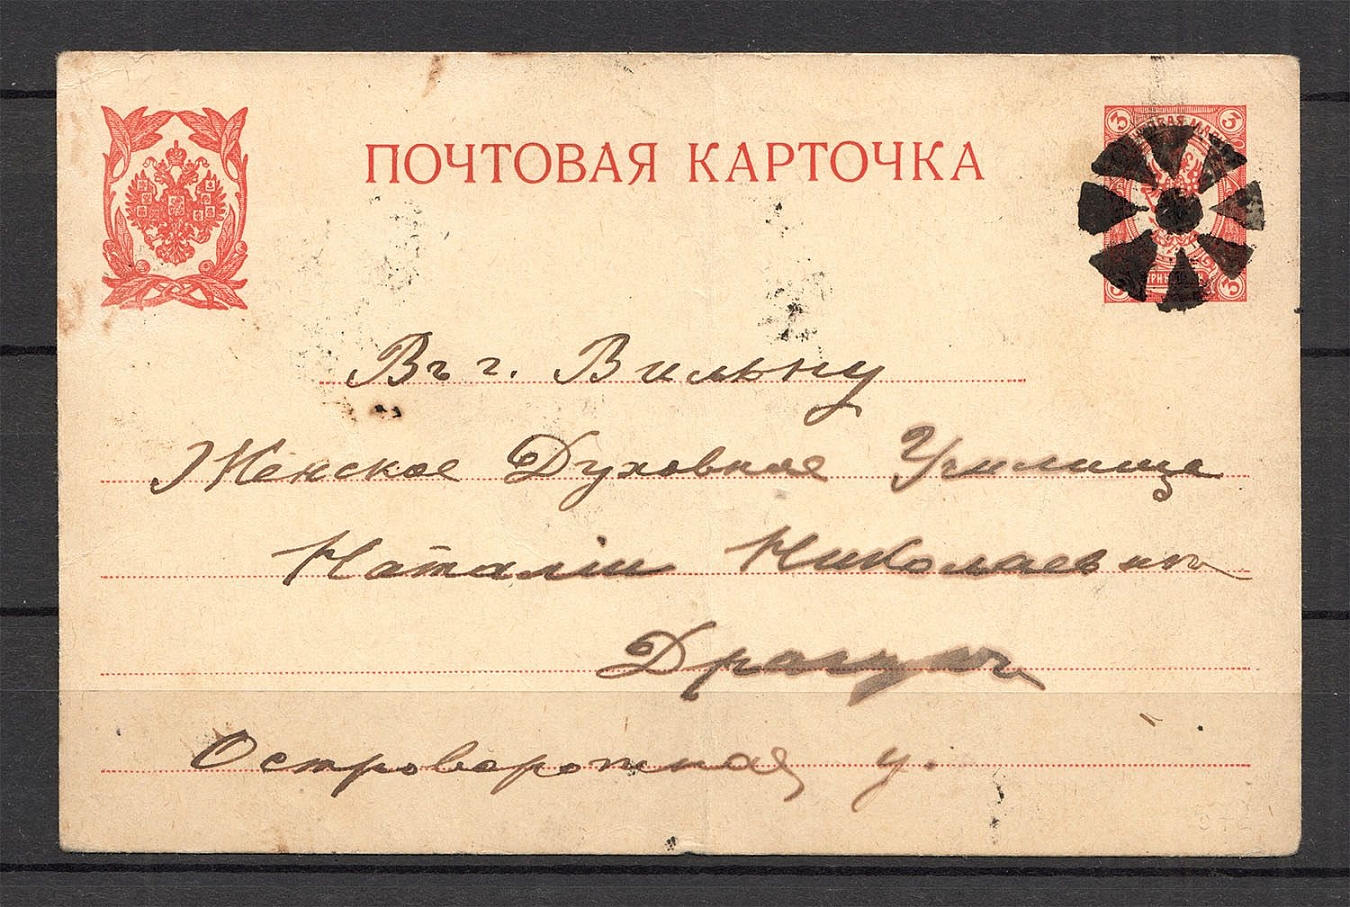 ПОЧТОВАЯ КАРТОЧКА
3 3
3
Въ г. Вильну
Женское Духовное Училище
Наталіи Николаевнѣ
Островоротная у.